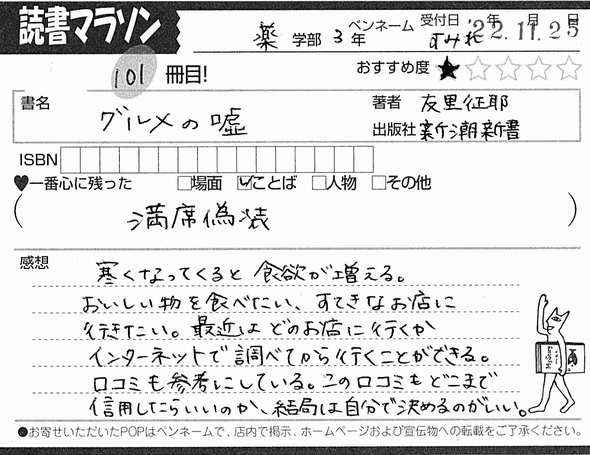 読書マラソン
薬 学部 3年 ペンネーム すみれ 受付日 '22年11月25日
101 冊目!
おすすめ度 ★☆☆☆☆
書名 グルメの嘘
著者 友里征耶
出版社 新潮新書
ISBN
♥一番心に残った □場面 ☑ことば □人物 □その他
( 満席偽装 )
感想
寒くなってくると食欲が増える。
おいしい物を食べたい、すてきなお店に
行きたい。最近はどのお店に行くか
インターネットで調べてから行くことができる。
口コミも参考にしている。この口コミもどこまで
信用したらいいのか、結局は自分で決めるのがいい。
●お寄せいただいたPOPはペンネームで、店内で掲示、ホームページおよび宣伝物への転載をご了承ください。